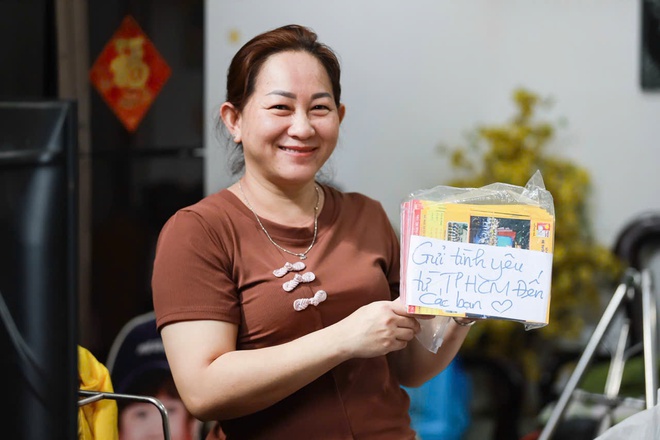 Gửi tình yêu
từ TPHCM Đến
các bạn ♡